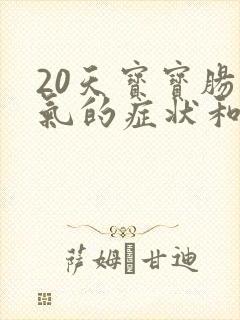 20天寶寶腸
氣的症狀和
萨姆 甘迪